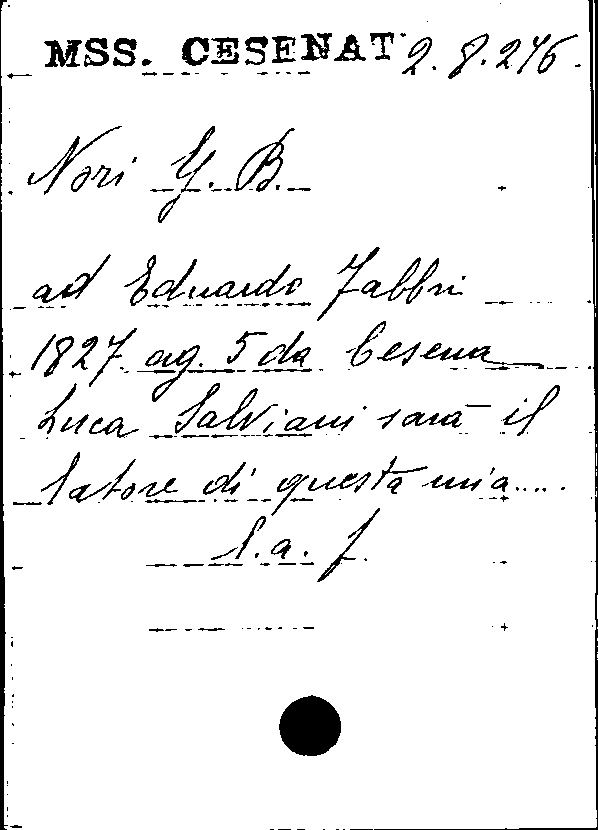 MSS. CESENAT. 2.8.276.
Nori G. B.
ad Eduardo Fabbri
1827 ag. 5 da Cesena
Luca Salviani sarà il
latore di questa mia....
l. a. f.